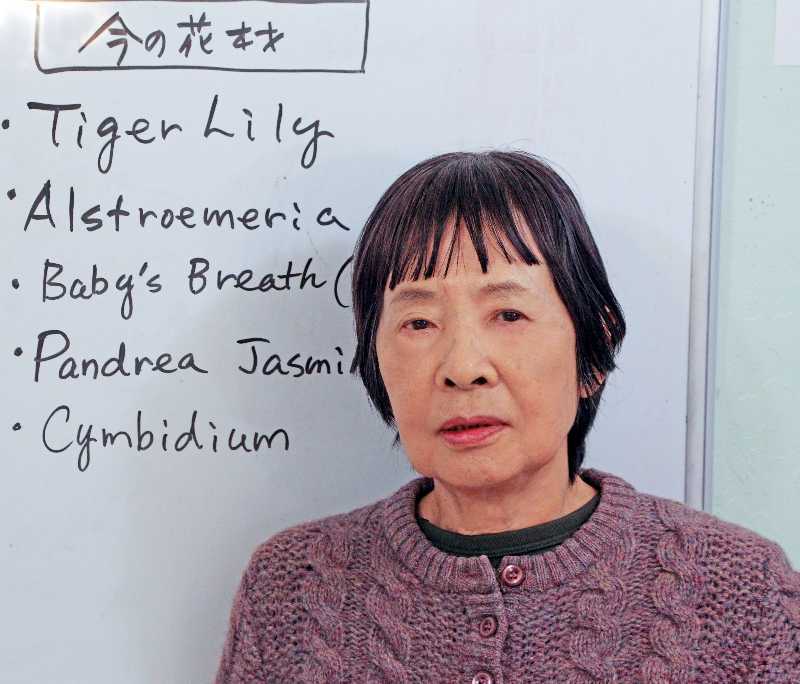 今の花材
・Tiger Lily
・Alstroemeria
・Baby's Breath (
・Pandrea Jasmi
・Cymbidium